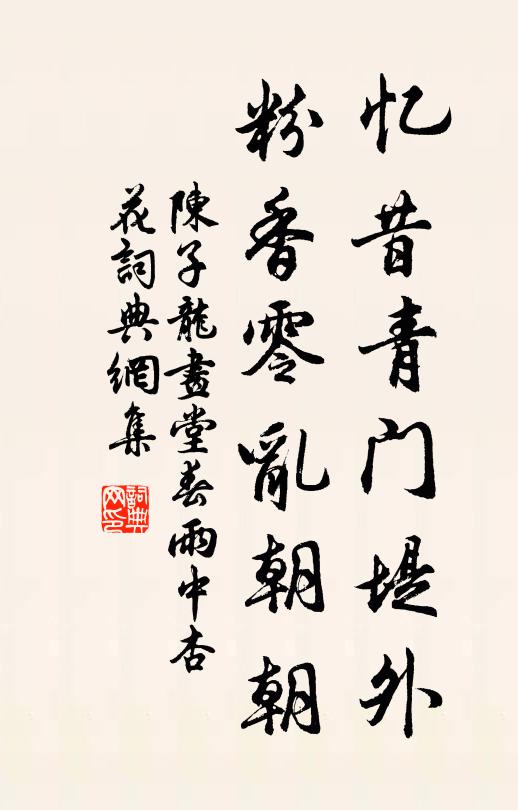 忆昔青门堤外
粉香零亂朝朝
陳子龍畫堂春雨中杏
花詞典網集
詞典网印